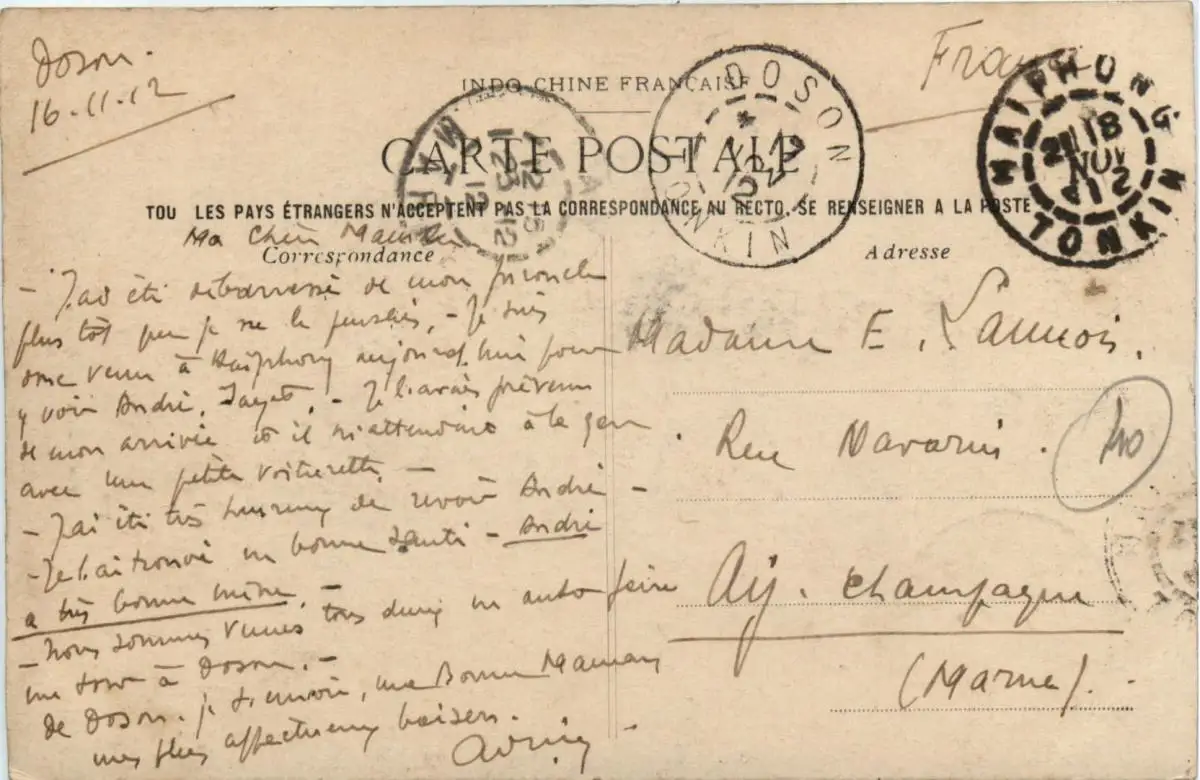 Doson.
16.11.12
France
INDO-CHINE FRANÇAISE
CARTE POSTALE
TOU LES PAYS ÉTRANGERS N'ACCEPTENT PAS LA CORRESPONDANCE AU RECTO. SE RENSEIGNER A LA POSTE
Correspondance
Adresse
DOSON
TONKIN
HAIPHONG
18
NOV
12
TONKIN
MARNE
23-12
12
Ma Chère Maman
- J'ai été débarrassé de mon
plus tôt que je ne le pensais, - Je suis
donc venu à Haïphong aujourd'hui pour
y voir André. - Je l'avais prévenu
de mon arrivée et il m'attendait à la gare
avec une petite voiturette. -
- J'ai été très heureux de revoir André -
- Je l'ai trouvé en bonne santé - André
a très bonne mine. -
- Nous sommes venus tous deux en auto faire
un tour à Doson. -
de Doson. je t'envoie, ma Bonne Maman
mes plus affectueux baisers.
Madame E. Launois.
Rue Navarin.
Aÿ. Champagne
(Marne).